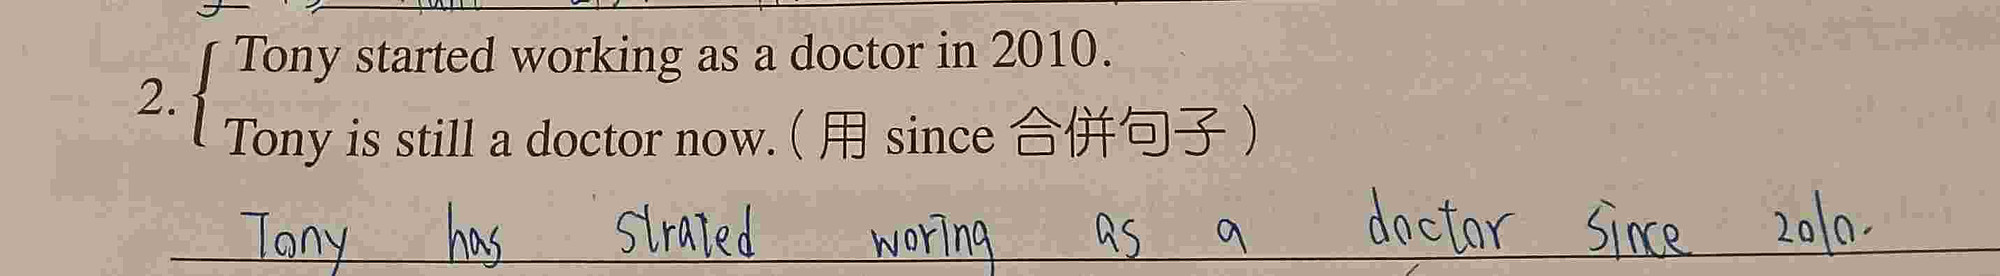 2. Tony started working as a doctor in 2010.
Tony is still a doctor now. ( 用 since 合併句子 )
Tony has strated woring as a doctor since 2010.